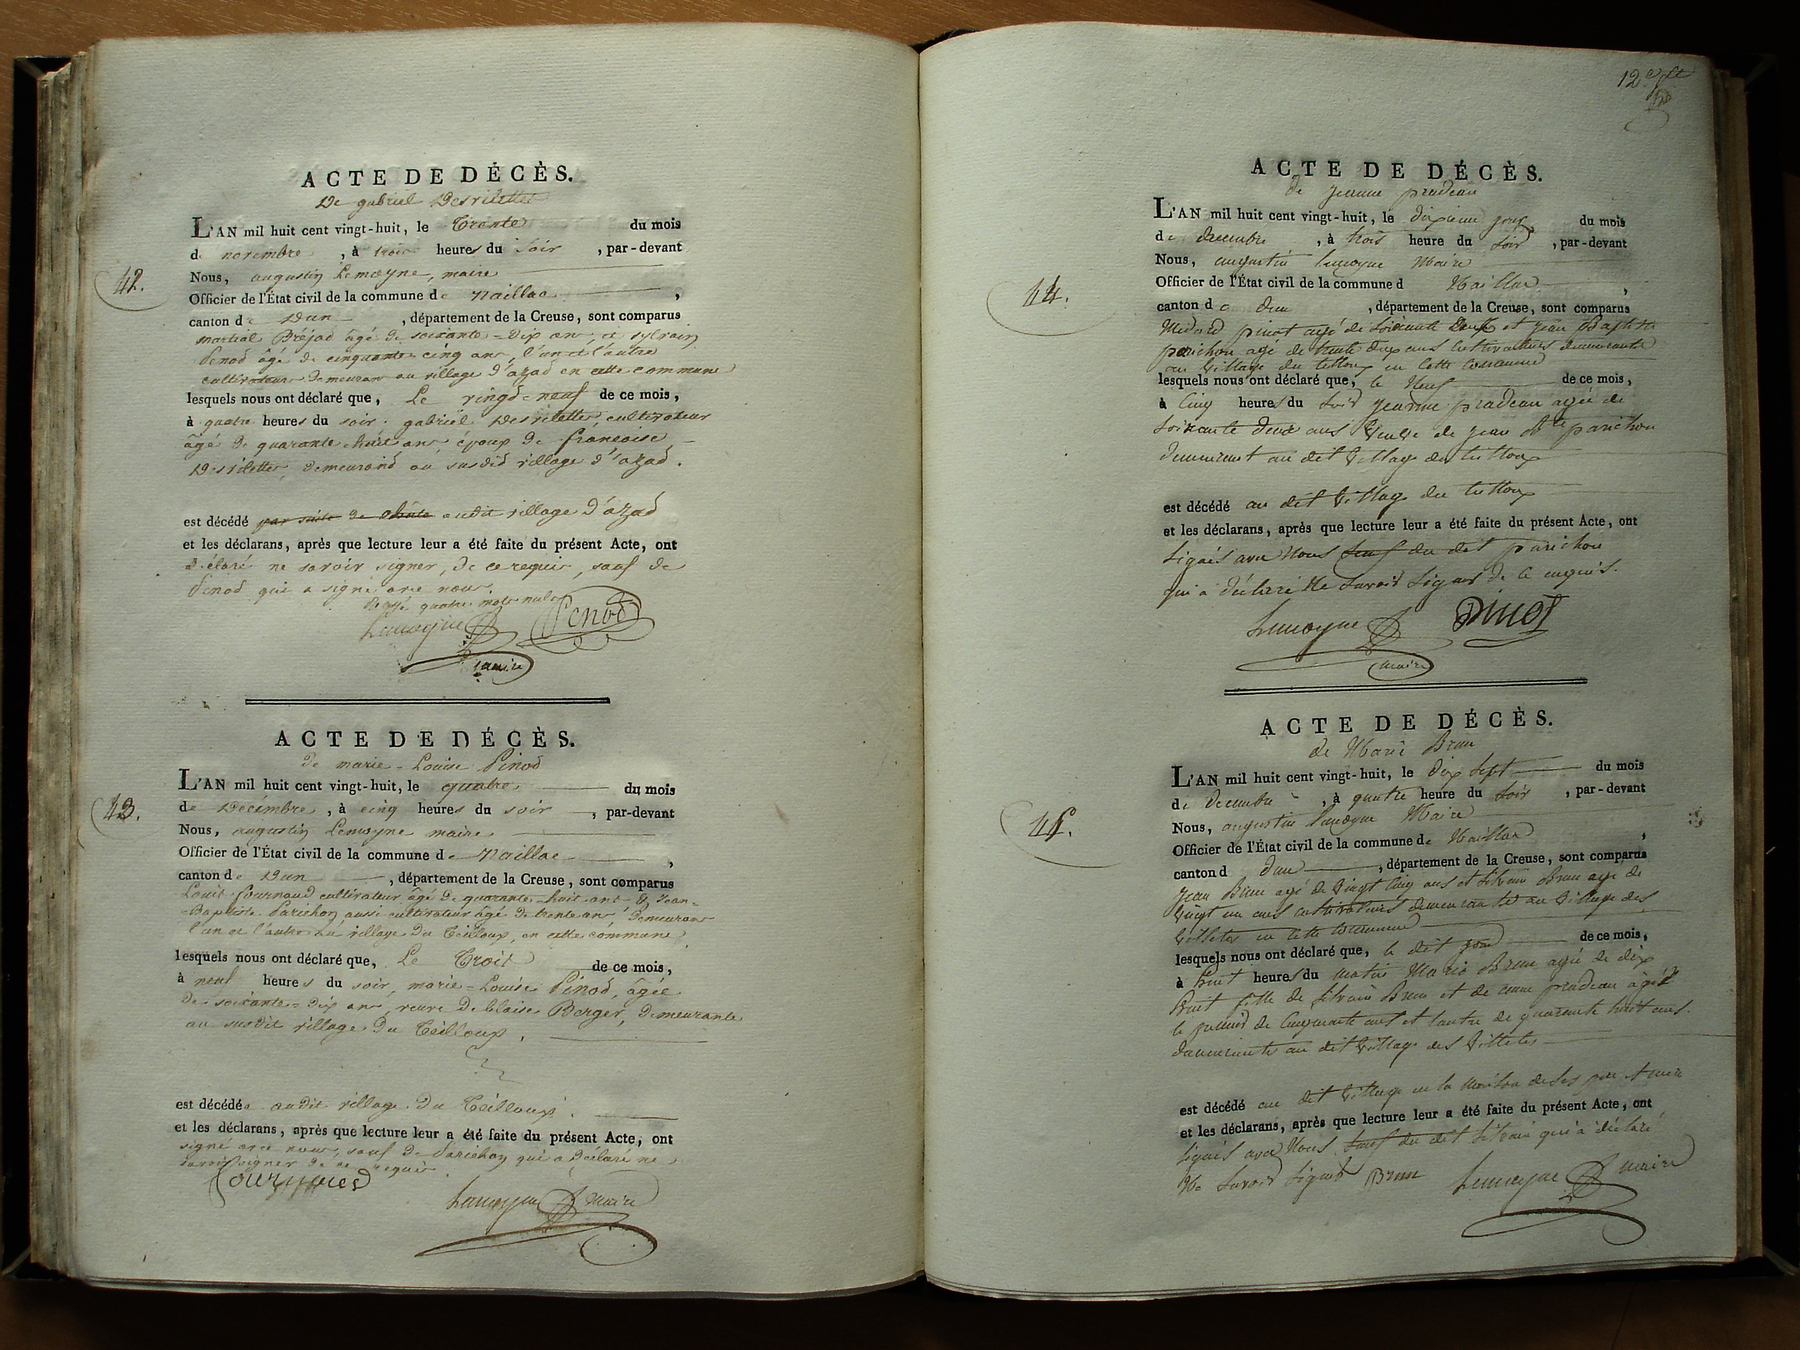 ACTE DE DÉCÈS.
De gabriel Desvilettes
L'AN mil huit cent vingt-huit, le Trente du mois
de novembre, à trois heures du soir, par-devant
Nous, augustin Lemoyne, maire
42.
Officier de l'État civil de la commune de Naillac,
canton de Dun, département de la Creuse, sont comparus
martial Préjad âgé de soixante-dix ans, et sylvain
Penod âgé de cinquante cinq ans, l'un et l'autre
cultivateurs demeurans au village d'azad en cette commune
lesquels nous ont déclaré que, Le vingt-neuf de ce mois,
à quatre heures du soir, gabriel Desvilettes, cultivateur
âgé de quarante huit ans, époux de françoise
Desvilettes, demeurand au susdid village d'azad.
est décédé par suite de chûte audit village d'azad
et les déclarans, après que lecture leur a été faite du présent Acte, ont
déclaré ne savoir signer, de ce requis, sauf de
Penod qui a signé avec nous
Rayé quatre mots nuls
Lemoyne Penod
maire
ACTE DE DÉCÈS.
de marie-Louise Pinod
L'AN mil huit cent vingt-huit, le quatre du mois
de Décembre, à cinq heures du soir, par-devant
43.
Nous, augustin Lemoyne maire
Officier de l'État civil de la commune de Naillac,
canton de Dun, département de la Creuse, sont comparus
Louis fournaud cultivateur âgé de quarante-huit ans & Jean-
-Baptiste Parichon, aussi cultivateur âgé de trente ans, demeurans
l'un et l'autre au village du Teilloux, en cette commune
lesquels nous ont déclaré que, Le Trois de ce mois,
à neuf heures du soir, marie-Louise Pinod, âgée
de soixante-dix ans, veuve de blaise Berger, demeurante
au susdit village du Teilloux.
est décédée audit village du Teilloux.
et les déclarans, après que lecture leur a été faite du présent Acte, ont
signé avec nous, sauf de Parichon qui a déclaré ne
savoir signer de ce requis.
Lemoyne maire
12
ACTE DE DÉCÈS.
de jeanne pradeau
L'AN mil huit cent vingt-huit, le dixieme jour du mois
de decembre, à trois heure du soir, par-devant
Nous, augustin lemoyne Maire
44.
Officier de l'État civil de la commune d Naillac,
canton de dun, département de la Creuse, sont comparus
Medard pinot agé de soixante Deux et jean Baptiste
parichon agé de trente dix ans cultivateurs demeurants
au Village du teilloux en cette commune
lesquels nous ont déclaré que, le Neuf de ce mois,
à Cinq heures du soir jeanne pradeau agée de
soixante deux ans Veuve de jean Bte parichon
demeurant au dit Village du teilloux
est décédé au dit Village du teilloux
et les déclarans, après que lecture leur a été faite du présent Acte, ont
signés avec Nous sauf du dit parichon
qui a déclaré Ne savoir signer de ce requis.
Lemoyne Pinot
maire
ACTE DE DÉCÈS.
de Marie Brun
L'AN mil huit cent vingt-huit, le dix sept du mois
de decembre, à quatre heure du soir, par-devant
Nous, augustin lemoyne Maire
45.
Officier de l'État civil de la commune de Naillac,
canton d dun, département de la Creuse, sont comparus
jean Brun agé de vingt cinq ans et silvain Brun agé de
vingt un ans cultivateurs demeurants au Village des
Villetes en cette commune
lesquels nous ont déclaré que, le dit jour de ce mois,
à huit heures du matin Marie Brun agée de dix
huit fille de silvain Brun et de anne pradeau agés
le premier de cinquante ans et lautre de quarante huit ans.
demeurants au dit Village des Villetes
est décédé au dit Village en la maison de ses pere et mere
et les déclarans, après que lecture leur a été faite du présent Acte, ont
signés avec Nous sauf du dit silvain qui a déclaré
Ne savoir signer Brun Lemoyne maire